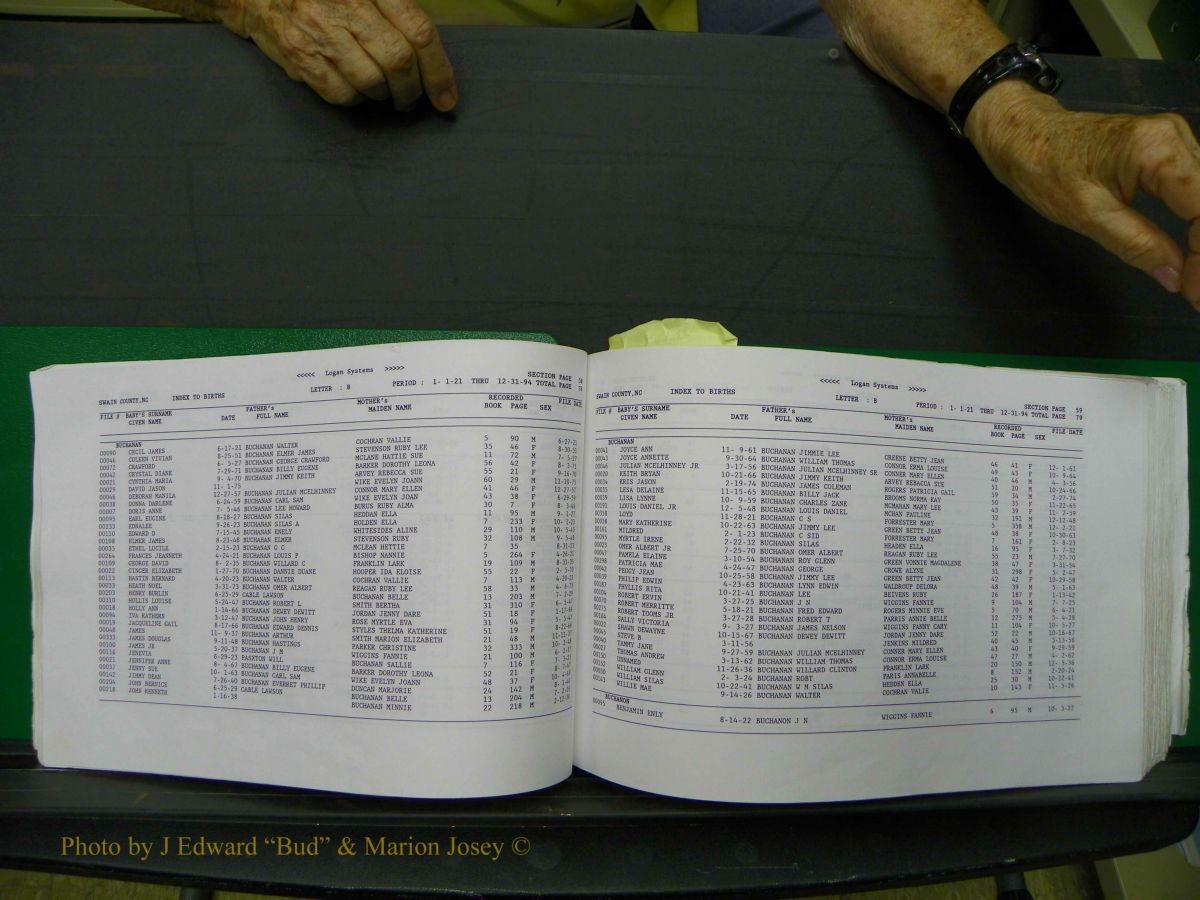 <<<<< Logan Systems >>>>>
SWAIN COUNTY,NC INDEX TO BIRTHS LETTER : B PERIOD : 1- 1-21 THRU 12-31-94 SECTION PAGE 58
TOTAL PAGE
FILE # BABY'S SURNAME GIVEN NAME DATE FATHER's FULL NAME MOTHER's MAIDEN NAME RECORDED BOOK PAGE SEX FILE DATE
BUCHANAN
00090 CECIL JAMES 6-17-21 BUCHANAN WALTER COCHRAN VALLIE 5 90 M 6-27-21
00046 COLEEN VIVIAN 8-25-51 BUCHANAN ELMER JAMES STEVENSON RUBY LEE 35 46 F
00072 CRAWFORD 6- 5-27 BUCHANAN GEORGE CRAWFORD MCLANE HATTIE SUE 11 72 M
00042 CRYSTAL DIANE 7-29-71 BUCHANAN BILLY EUGENE BARKER DOROTHY LEONA 56 42 F
00021 CYNTHIA MARIA 9- 4-70 BUCHANAN JIMMY KEITH ARVEY REBECCA SUE 55 21 F
00029 DAVID JASON 11- 1-75 WIKE EVELYN JOANN 60 29 M
00046 DEBORAH MANILA 12-27-57 BUCHANAN JULIAN MCELHINNEY CONNOR MARY ELLEN 41 46 F
00038 DONNA DARLENE 6-24-59 BUCHANAN CARL SAM WIKE EVELYN JOAN 43 38 F
00007 DORIS ANNE 7- 5-46 BUCHANAN LEE HOWARD BURUS RUBY ALMA 30 7 F
00095 EARL EUGENE 8-18-27 BUCHANAN SILAS HEDDAN ELLA 11 95 M
00233 EDNALEE 9-26-23 BUCHANAN SILAS A HOLDEN ELLA 7 233 F
00110 EDWARD D 7-15-45 BUCHANAN ENELY WHITESIDES ALINE 29 110 M
00108 ELMER JAMES 8-23-48 BUCHANAN ELMER STEVENSON RUBY 32 108 M
00035 ETHEL LUCILE 2-15-23 BUCHANAN G C MCLEAN HETTIE 7 35
00264 FRANCES JEANNETH 4-24-21 BUCHANAN LOUIS P BISHOP NANNIE 5 264 F
00109 GEORGE DAVID 8- 2-35 BUCHANAN WILLARD C FRANKLIN LARK 19 109 M
00022 GINGER ELIZABETH 1-27-70 BUCHANAN DANNIE DUANE HOOPER IDA ELOISE 55 22 F
00113 HASTIN BERNARD 4-20-23 BUCHANAN WALTER COCHRAN VALLIE 7 113 M
00033 HEATH NOEL 3-31-73 BUCHANAN OMER ALBERT REAGAN RUBY LEE 58 33 M
00203 HENRY BURLIN 6-25-29 CABLE LAWSON BUCHANAN BELLE 13 203 M
00310 HOLLIS LOUISE 5-24-47 BUCHANAN ROBERT L SMITH BERTHA 31 310 F
00018 HOLLY ANN 1-14-66 BUCHANAN DEWEY DEWITT JORDAN JENNY DARE 51 18 F
00094 IVA KATHERN 3-12-47 BUCHANAN JOHN HENRY ROSE MYRTLE EVA 31 94 F
00019 JACQUELINE GAIL 8-17-66 BUCHANAN EDWARD DENNIS STYLES THELMA KATHERINE 51 19 F
00048 JAMES 9-11-48 BUCHANAN JAMES HASTINGS SMITH MARION ELIZABETH 21 48 M
00333 JAMES DOUGLAS 11- 9-37 BUCHANAN ARTHUR PARKER CHRISTINE 32 333 M
00100 JAMES JR 5-20-37 BUCHANAN J M WIGGINS FANNIE 21 100 M
00116 JENEVIA 6-29-23 PAXTON WILL BUCHANAN SALLIE 7 116 F
00021 JENNIFER ANNE 8- 4-67 BUCHANAN BILLY EUGENE BARKER DOROTHY LEONA 52 21 F
00037 JENNY SUE 10- 1-63 BUCHANAN CARL SAM WIKE EVELYN JOANN 48 37 F
00142 JIMMY DEAN 7-26-40 BUCHANAN EVERRET PHILLIP DUNCAN MARJORIE 24 142 M
00204 JOHN BERNICE 6-25-29 CABLE LAWSON BUCHANAN BELLE 13 204 M
00218 JOHN KENNETH 1-16-38 BUCHANAN MINNIE 22 218 M
<<<<< Logan Systems >>>>>
SWAIN COUNTY,NC INDEX TO BIRTHS LETTER : B PERIOD : 1- 1-21 THRU 12-31-94 SECTION PAGE 59
TOTAL PAGE 79
FILE # BABY'S SURNAME GIVEN NAME DATE FATHER's FULL NAME MOTHER's MAIDEN NAME RECORDED BOOK PAGE SEX FILE DATE
BUCHANAN
00041 JOYCE ANN 11- 9-61 BUCHANAN JIMMIE LEE GREENE BETTY JEAN 46 41 F 12- 1-61
00043 JOYCE ANNETTE 9-30-64 BUCHANAN WILLIAM THOMAS CONNOR ERMA LOUISE 49 43 F 10- 9-64
00046 JULIAN MCELHINNEY JR 3-17-56 BUCHANAN JULIAN MCELHINNEY SR CONNER MARY ELLEN 40 46 M 4- 3-56
00020 KEITH BRYAN 10-21-66 BUCHANAN JIMMY KEITH ARVEY REBECCA SUE 51 20 M 10-24-66
KRIS JASON 2-19-74 BUCHANAN JAMES COLEMAN ROGERS PATRICIA GAIL 59 34 M 2-27-74
LESA DELAINE 11-15-65 BUCHANAN BILLY JACK BROOMS NORMA KAY 50 39 F
LISA LYNNE 10- 9-59 BUCHANAN CHARLES ZANE MCMAHAN MARY LEE 43 F
00191 LOUIS DANIEL JR 12- 5-48 BUCHANAN LOUIS DANIEL MCHAN PAULINE 32 191 M 12-12-48
00358 LOYD 11-28-21 BUCHANAN C S FORRESTER MARY 5 358 M 12- 2-21
00038 MARY KATHERINE 10-22-63 BUCHANAN JIMMY LEE GREEN BETTY JEAN 48 38 F 10-30-63
00161 MILDRED 2- 1-23 BUCHANAN C SID FORRESTER MARY 7 161 F 8- 2-23
00095 MYRTLE IRENE 2-22-32 BUCHANAN SILAS HEADEN ELLA 16 95 F 3- 7-32
00023 OMER ALBERT JR 7-25-70 BUCHANAN OMER ALBERT REAGAN RUBY LEE 55 23 M 7-27-70
00047 PAMELA ELAINE 3-10-54 BUCHANAN ROY GLENN GREEN VONNIE MAGDALENE 38 47 F 3-31-54
00298 PATRICIA MAE 4-24-47 BUCHANAN GEORGE CROWE ALYNE 31 298 F 5- 2-47
00042 PEGGY JEAN 10-25-58 BUCHANAN JIMMY LEE GREEN BETTY JEAN 42 42 F 10-29-58
00039 PHILIP EDWIN 4-23-63 BUCHANAN LYNN EDWIN WALDROUP DELORA 48 39 M 5- 1-63
00187 PHYLLIS RITA 10-21-41 BUCHANAN LEE BEIVENS RUBY 26 187 F 1-13-42
00104 ROBERT ERVIN 3-27-25 BUCHANAN J N WIGGINS FANNIE 9 104 M 7- 7-25
00070 ROBERT MERRITTE 5-18-21 BUCHANAN FRED EDWARD ROGERS MINNIE EVE 5 70 M 6- 4-21
00275 ROBERT TOOMS JR 3-27-28 BUCHANAN ROBERT T PARRIS ANNIE BELLE 12 275 M 5- 4-28
00104 SALLY VICTORIA 9- 3-27 BUCHANAN JAMES NELSON WIGGINS FANNY CARY 11 104 F 10- 5-27
00022 SHAUN DEWAYNE 10-15-67 BUCHANAN DEWEY DEWITT JORDAN JENNY DARE 52 22 M 10-16-67
00045 STEVE B 3-11-56 JENKINS MILDRED 40 45 M 3-13-56
00040 TAMMY JANE 9-27-59 BUCHANAN JULIAN MCELHINNEY CONNER MARY ELLEN 43 40 F 9-29-59
00027 THOMAS ANDREW 3-13-62 BUCHANAN WILLIAM THOMAS CONNOR ERMA LOUISE 47 27 M 4- 2-62
00150 UNNAMED 11-26-36 BUCHANAN WILLARD CLINTON FRANKLIN LARK 20 150 M 12- 5-36
00152 WILLIAM GLENN 2- 3-24 BUCHANAN ROBT PARIS ANNABELLE 8 152 M 2-20-24
00030 WILLIAM SILAS 10-22-41 BUCHANAN W M SILAS HEDDEN ELLA 25 30 M 10-22-41
00143 WILLIE MAE 9-14-26 BUCHANAN WALTER COCHRAN VALIE 10 143 F 11- 3-26
BUCHANON
00095 BENJAMIN ENLY 8-14-22 BUCHANON J N WIGGINS FANNIE 6 95 M 10- 3-22
Photo by J Edward “Bud” & Marion Josey ©